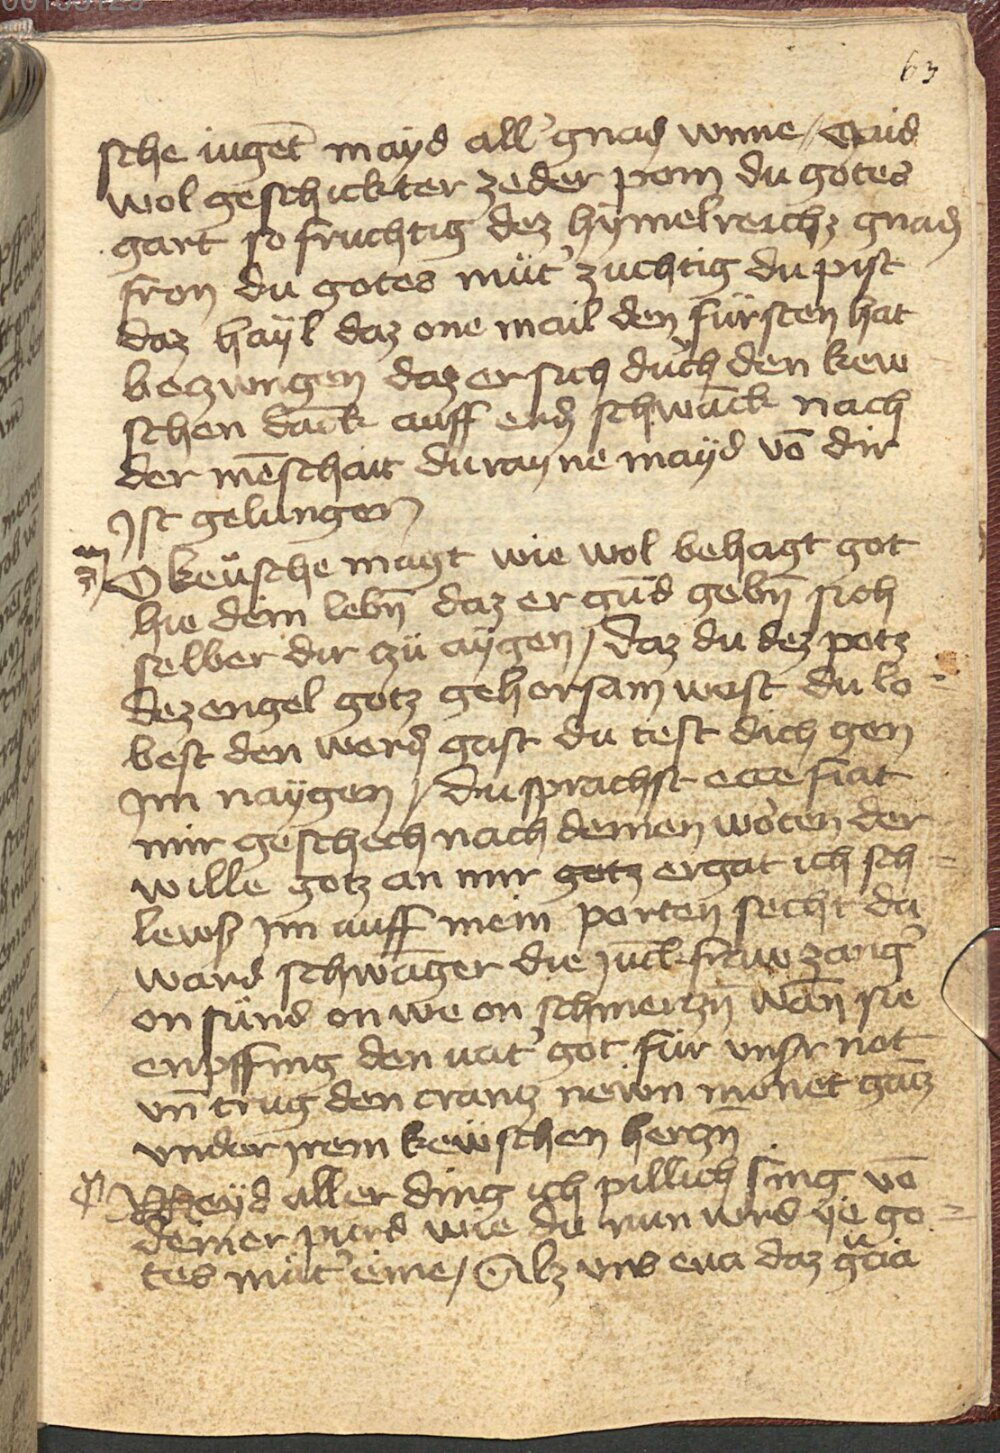 63
sche iuget̄ mayd all' gnad wnne // Gaid
wol geschickter zeder pom du gotes
gart so fruchtig dez hymelreichz gnad
fron du gotes müt' zuchtig du pist
daz hayl daz one mail den fürsten hat
beczwngen daz er sich duͬch den kew
schen dāck auff erd schwāck nach
der mēschait du rayne mayd vō dir
Ist gelungen
O keüsche magt wie wol behagt got
hie dein lebn̄ daz er gūd gebn̄ sich
selber dir czü aygen / Daz du dez potz
dez engel gotz gehorsam wast du lo=
best den werd gast du test dich gen
im naygen / Du sprachst ecce fiat
mir geschech nach deinen woͤten der
wille gotz an mir gotz ergat ich sch=
lewß im auff mein porten secht da
ward schwāger die Jūckfraw zang'
on sünd on we on schmerczn̄ wān sie
enpffing den uat' got für vnsr not
vn̄ trug den crantz newn monet gātz
vnder irem kewschen herczn̄
Meyd aller ding ich pillich sing vō
deiner purd wie du nun wrd ye go=
tes müt' eine / Alz vns eua daz